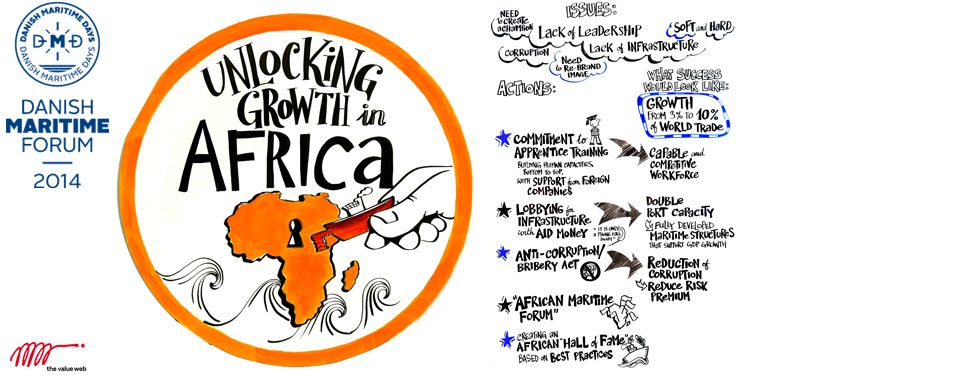 DANISH MARITIME DAYS
DMD
DANISH MARITIME DAYS
DANISH
MARITIME
FORUM
2014
the value web
UNLOCKING
GROWTH in
AFRICA
ISSUES:
NEED
to CREATE
a CHAMPION
LACK of LEADERSHIP
SOFT and HARD
CORRUPTION
LACK of INFRASTRUCTURE
NEED
to RE-BRAND
IMAGE
ACTIONS:
WHAT SUCCESS
WOULD LOOK LIKE:
GROWTH
FROM 3% to 10%
of WORLD TRADE
COMMITMENT to
APPRENTICE TRAINING
BUILDING HUMAN CAPACITIES,
BOTTOM to TOP,
with SUPPORT from FOREIGN
COMPANIES
CAPABLE and
COMPETITIVE
WORKFORCE
LOBBYING for
INFRASTRUCTURE
with AID MONEY
IT IS ONLY
a PHONE CALL
AWAY
DOUBLE
PORT CAPACITY
FULLY DEVELOPED
MARITIME STRUCTURES
THAT SUPPORT GDP GROWTH
ANTI-CORRUPTION/
BRIBERY ACT
REDUCTION of
CORRUPTION
REDUCE RISK
PREMIUM
"AFRICAN MARITIME
FORUM"
CREATING AN
AFRICAN "HALL of FAME"
BASED ON BEST PRACTICES